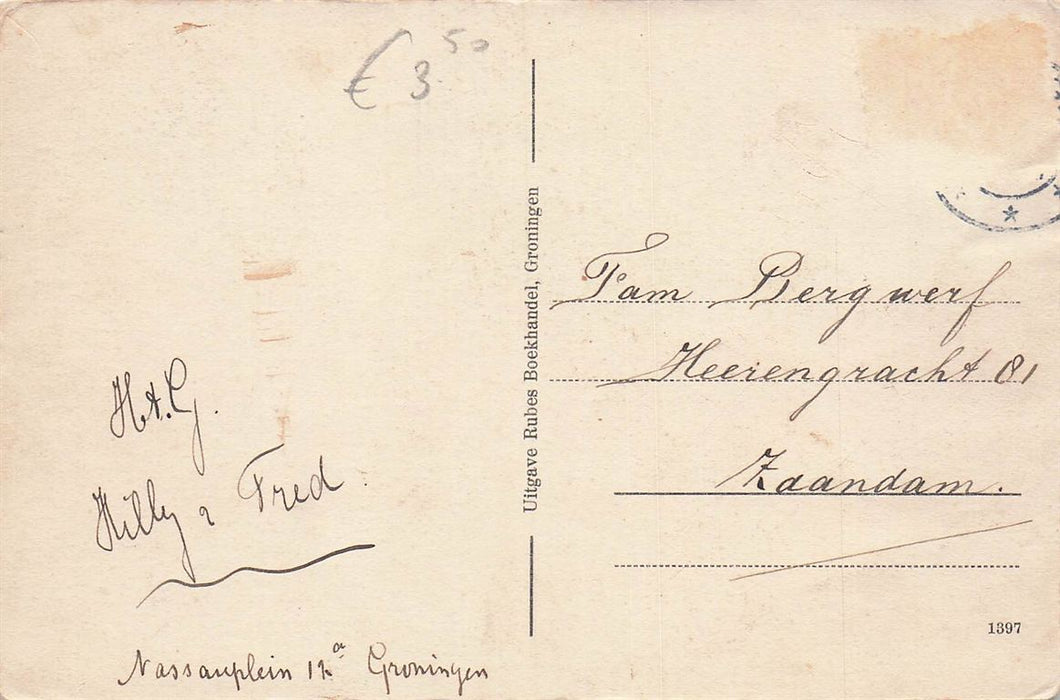 € 3 50
H.t.G.
Hilly & Fred
Nassauplein 12a Groningen
Uitgave Rubes Boekhandel, Groningen
Fam Bergwerf
Heerengracht 81
Zaandam.
1397